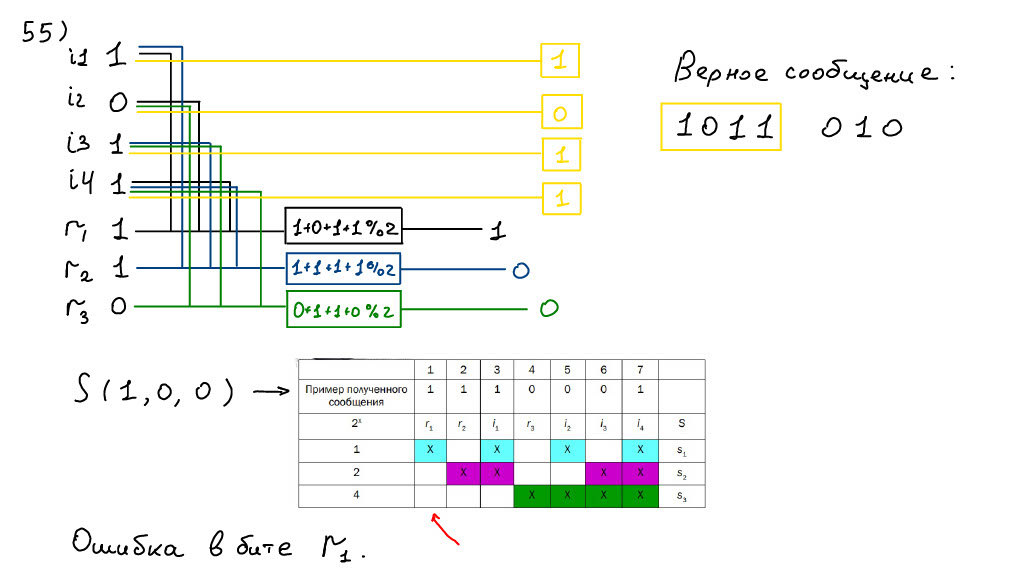 55)
i1 1 1
i2 0 0
i3 1 1
i4 1 1
r1 1 1+0+1+1%2 1
r2 1 1+1+1+1%2 0
r3 0 0+1+1+0%2 0
Верное сообщение:
1011 010
S(1,0,0) →
1 2 3 4 5 6 7
Пример полученного сообщения 1 1 1 0 0 0 1
2ˣ r₁ r₂ i₁ r₃ i₂ i₃ i₄ S
1 X X X X s₁
2 X X X X s₂
4 X X X X s₃
Ошибка в бите r1.